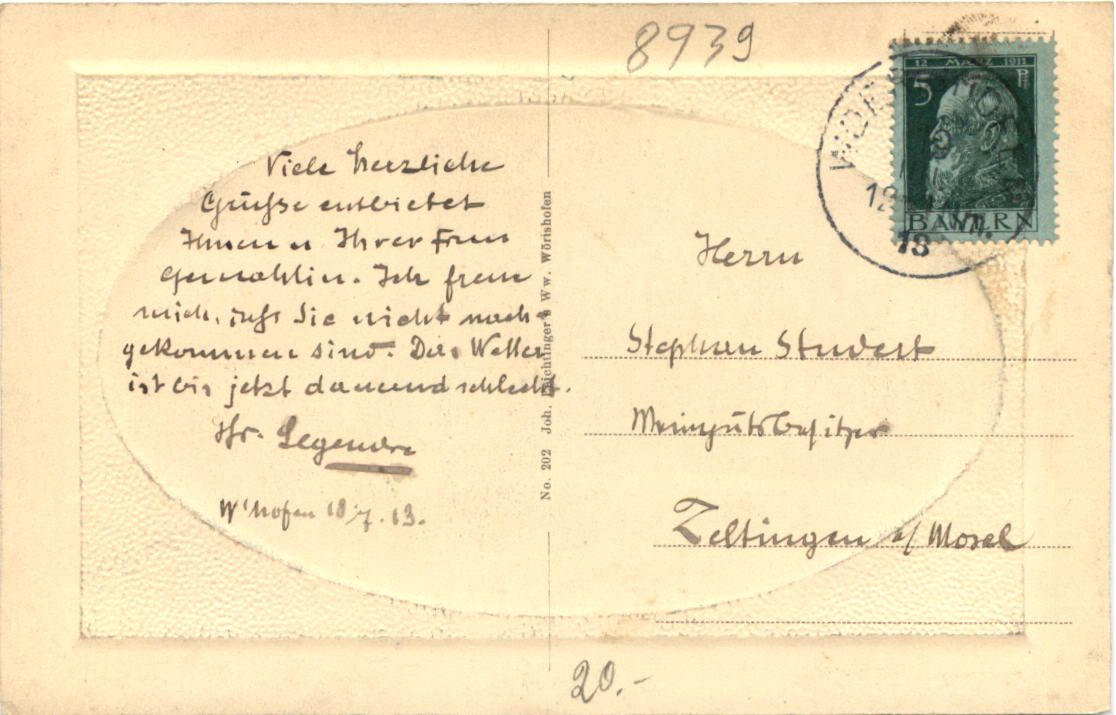 8939
12 MÄRZ 1911
5 Pf
BAYERN
Viele herzliche
Grüße entbietet
Ihnen u. Ihrer Frau
Gemahlin. Ich freue
mich, daß Sie nicht nach-
gekommen sind. Das Wetter
ist bis jetzt dauernd schlecht.
Ihr Legendre
W'hofen 18/7.13.
No. 202 Joh. Ww. Wörishofen
Herrn
Stephan Studert
Weingutsbesitzer
Zeltingen a/Mosel
20.-